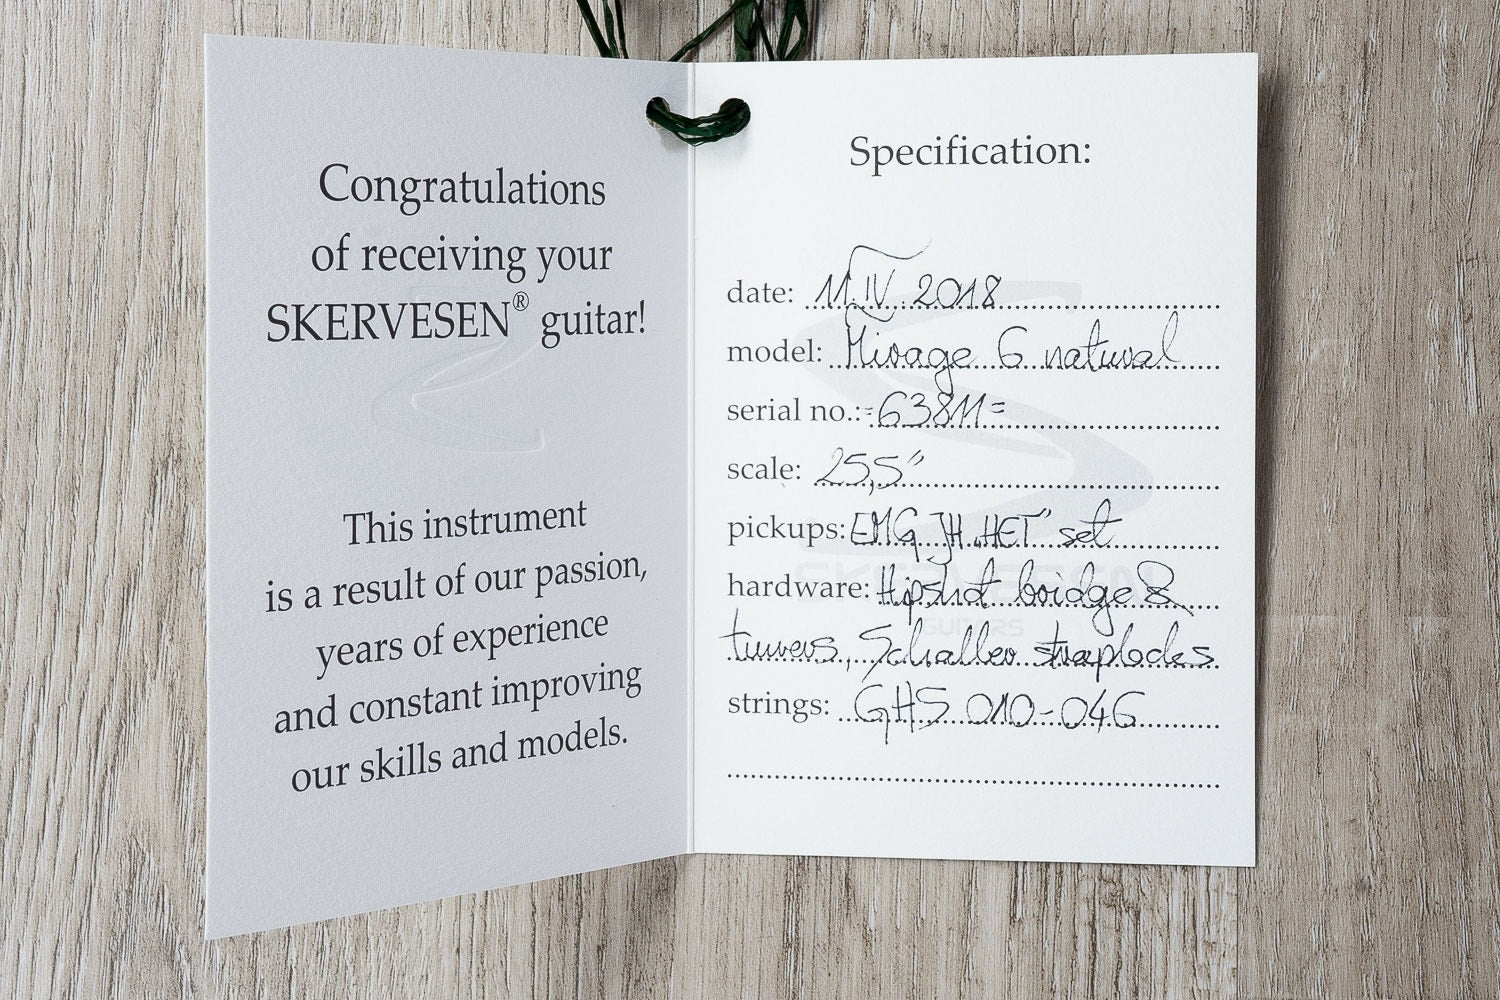 Congratulations
of receiving your
SKERVESEN® guitar!
This instrument
is a result of our passion,
years of experience
and constant improving
our skills and models.
Specification:
date: 11.IV.2018
model: Mirage 6 natural
serial no.: =63811=
scale: 25,5"
pickups: EMG JH „HET" set
hardware: Hipshot bridge &
tuners, Schaller straplocks
strings: GHS 010-046
SKERVESEN
GUITARS